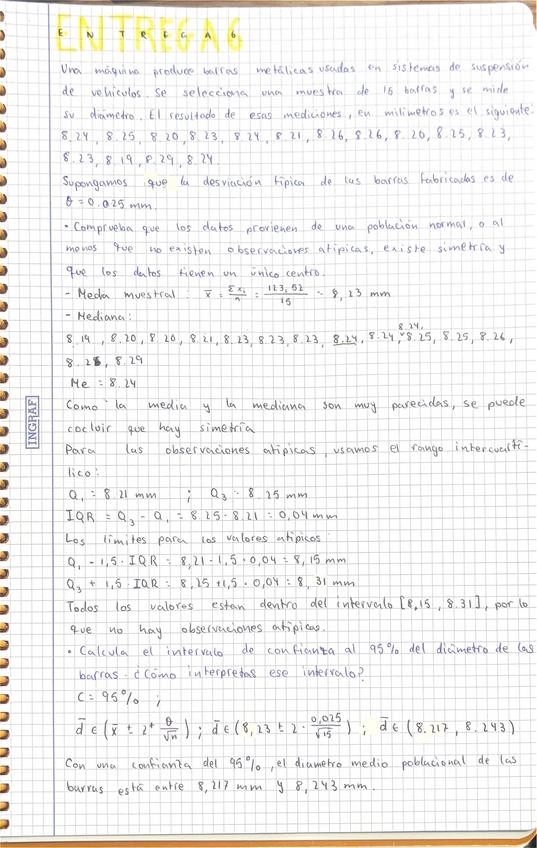 ENTREGA 6
Una máquina produce barras metálicas usadas en sistemas de suspensión
de vehículos. Se selecciona una muestra de 15 barras y se mide
su diámetro. El resultado de esas mediciones, en milímetros es el siguiente:
8.24, 8.25, 8.20, 8.23, 8.24, 8.21, 8.26, 8.26, 8.20, 8.25, 8.23,
8.23, 8.19, 8.29, 8.24
Supongamos que la desviación típica de las barras fabricadas es de
θ = 0.025 mm.
• Comprueba que los datos provienen de una población normal, o al
menos que no existen observaciones atípicas, existe simetría y
que los datos tienen un único centro.
- Media muestral: x̄ = Σxi/n = 123,52/15 = 8,23 mm
- Mediana:
8.19, 8.20, 8.20, 8.21, 8.23, 8.23, 8.23, 8.24, 8.24, 8.24, 8.25, 8.25, 8.26,
8.26, 8.29
Me = 8.24
Como la media y la mediana son muy parecidas, se puede
cocluir que hay simetría
Para las observaciones atípicas, usamos el rango intercuartí-
lico:
Q₁ = 8.21 mm ; Q₃ = 8.25 mm
IQR = Q₃ - Q₁ = 8.25 - 8.21 = 0,04 mm
Los límites para los valores atípicos:
Q₁ - 1,5 · IQR = 8,21 - 1,5 · 0,04 = 8,15 mm
Q₃ + 1,5 · IQR = 8,25 + 1,5 · 0,04 = 8,31 mm
Todos los valores estan dentro del intervalo [8,15, 8.31], por lo
que no hay observaciones atípicas.
• Calcula el intervalo de confianza al 95% del diámetro de las
barras. ¿Cómo interpretas ese intervalo?
C = 95% ;
d̄ ∈ (x̄ ± z* θ/√n) ; d̄ ∈ (8,23 ± 2 · 0,025/√15) ; d̄ ∈ (8.217, 8.243)
Con una confianza del 95%, el diametro medio poblacional de las
barras está entre 8,217 mm y 8,243 mm.
INGRAF